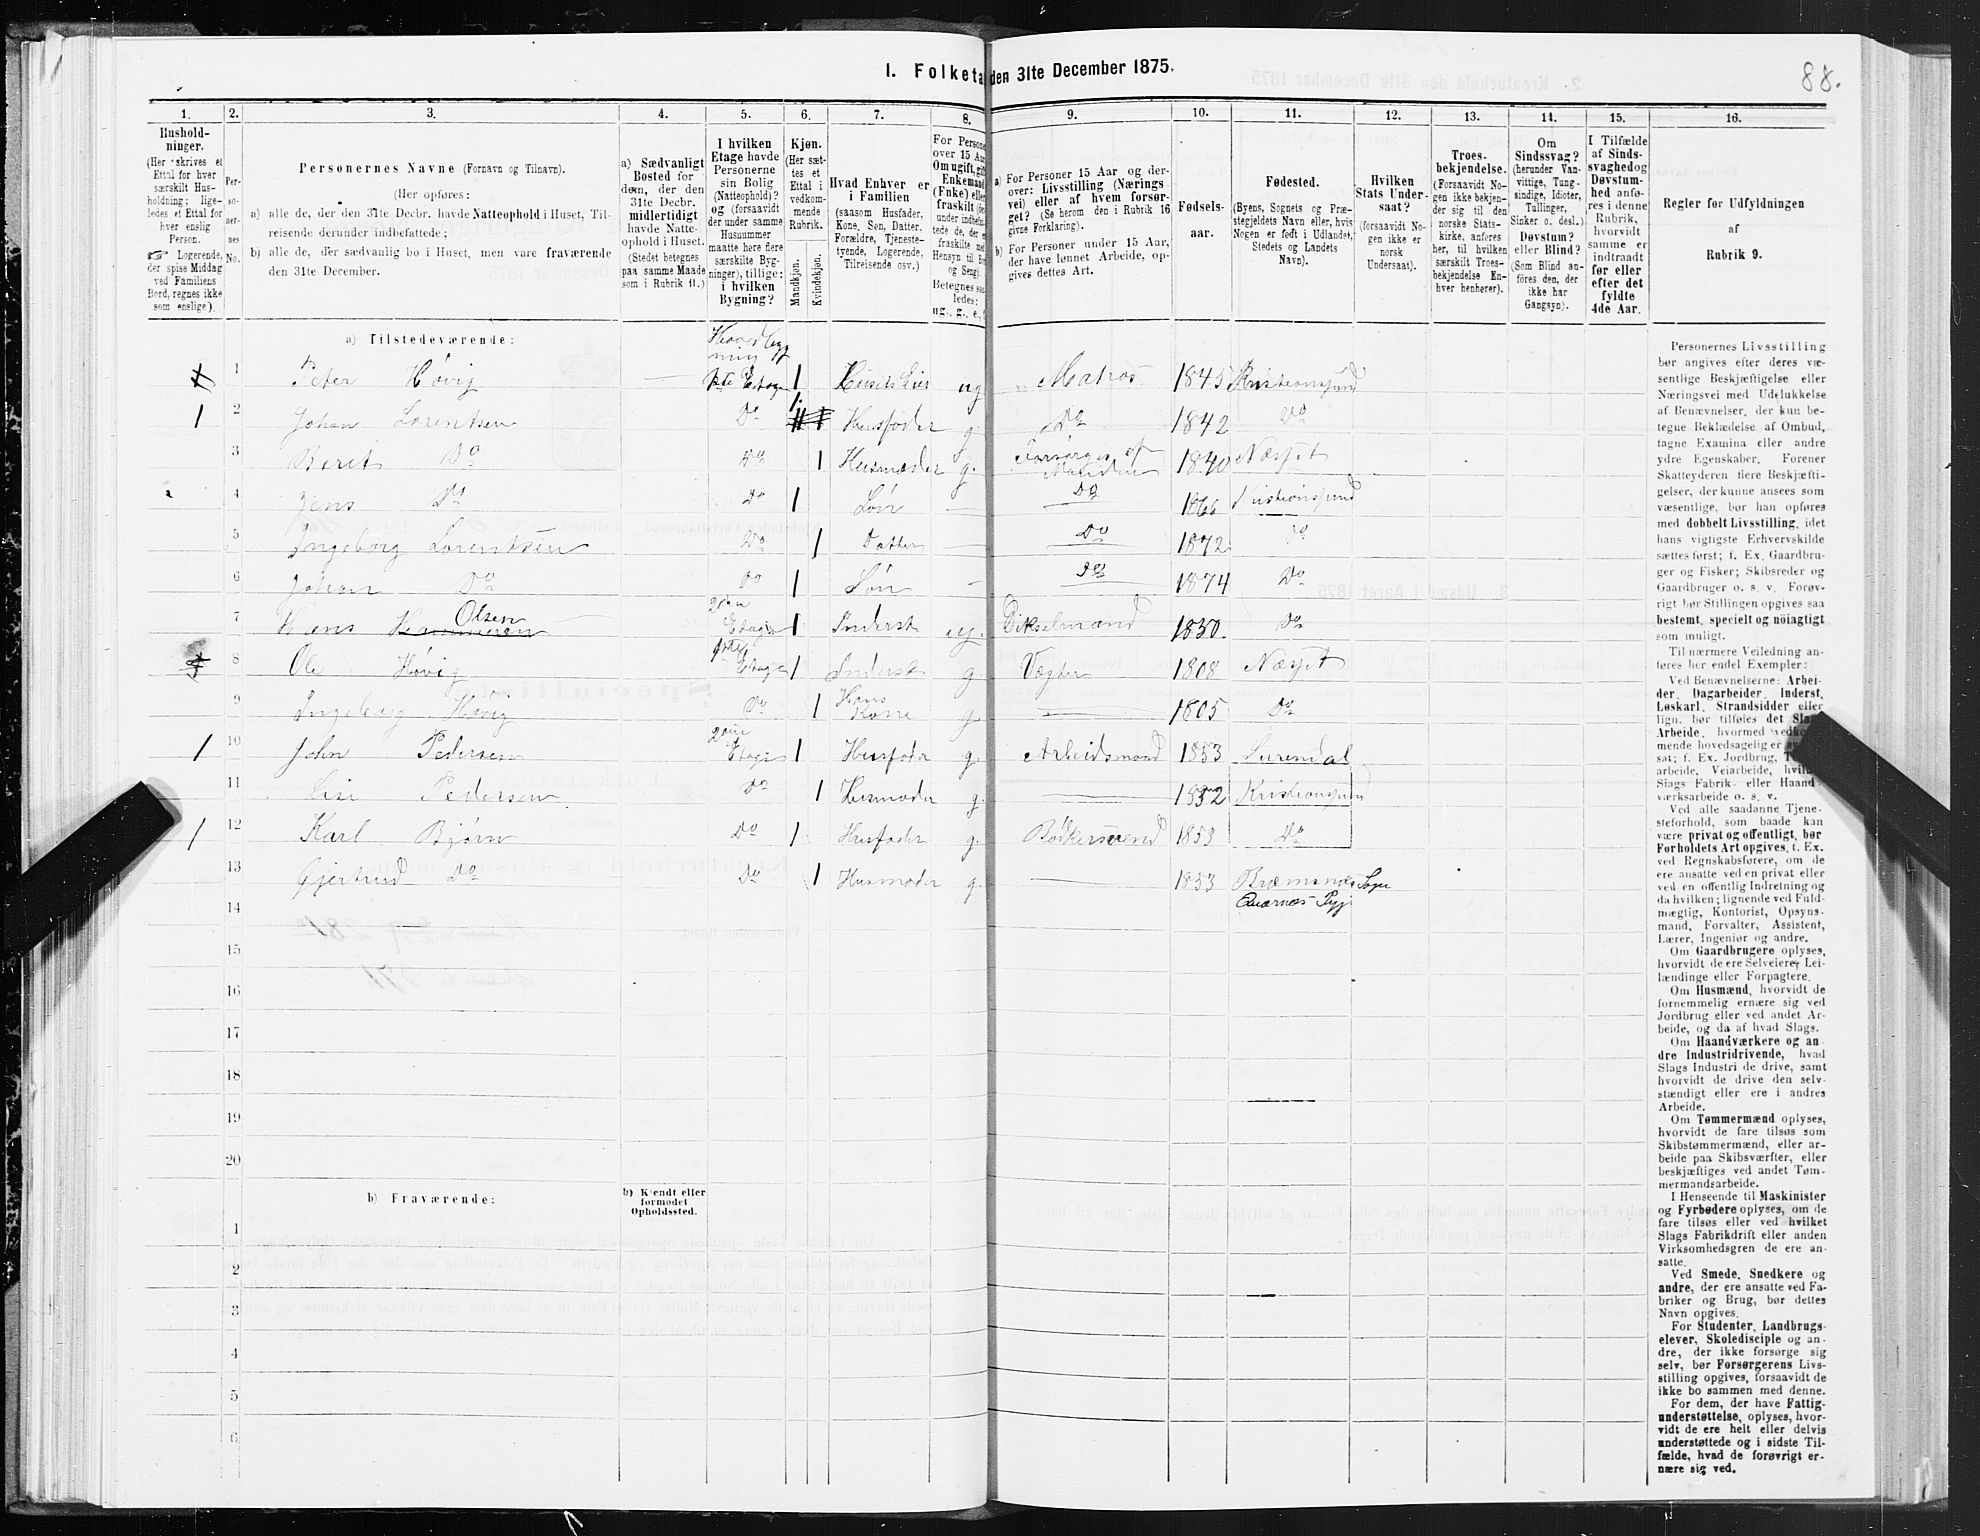 I. Folketa den 31te December 1875.
88.
1. 2. 3. 4. 5. 6. 7. 8. 9. 10. 11. 12. 13. 14. 15. 16.
Hushold-
ninger.
(Her skrives et
Ettal for hver
særskilt Hus-
holdning; lige-
ledes et Ettal for
hver enslig
Person.
Logerende,
der spise Middag
ved Familiens
Bord, regnes ikke
som enslige).
Per-
so-
ner-
nes
No.
Personernes Navne (Fornavn og Tilnavn).
(Her opføres:
a) alle de, der den 31te Decbr. havde Natteophold i Huset, Til-
reisende derunder indbefattede;
b) alle de, der sædvanlig bo i Huset, men vare fraværende
den 31te December.
a) Sædvanligt
Bosted for
dem, der den
31te Decbr.
midlertidigt
havde Natte-
ophold i Huset.
(Stedet betegnes
paa samme Maade
som i Rubrik 11.)
I hvilken
Etage havde
Personerne
sin Bolig
(Natteophold)?
og (forsaavidt
der under samme
Husnummer
maatte høre flere
særskilte Byg-
ninger), tillige:
i hvilken
Bygning?
Kjøn.
(Her sæt-
tes et
Ettal i
vedkom-
mende
Rubrik.
Mandkjøn.
Kvindekjøn.
Hvad Enhver er
i Familien
(saasom Husfader,
Kone, Søn, Datter,
Forældre, Tjeneste-
tyende, Logerende,
Tilreisende osv.)
For Persone
over 15 Aar
Om ugift, gift
Enkemand
(Enke) eller
fraskilt
Betegnes saa
ledes:
ug., g., e.,
a) For Personer 15 Aar og der-
over: Livsstilling (Nærings
vei) eller af hvem forsør-
get? (Se herom den i Rubrik 16
givne Forklaring).
b) For Personer under 15 Aar,
der have lønnet Arbeide, op-
gives dettes Art.
Fødsels-
aar.
Fødested.
(Byens, Sognets og Præ-
stegjeldets Navn eller, hvis
Nogen er født i Udlandet,
Stedets og Landets
Navn).
Hvilken
Stats Under-
saat?
(forsaavidt No-
gen ikke er
norsk
Undersaat).
Troes-
bekjendelse.
(Forsaavidt No-
gen ikke bekjen-
der sig til den
norske Stats-
kirke, anføres
her, til hvilken
særskilt Troes-
bekjendelse En-
hver henhører).
Om
Sindssvag?
(herunder Van-
vittige, Tung-
sindige, Idioter,
Tullinger,
Sinker o. desl.)
Døvstum?
eller Blind?
(Som Blind an-
føres den, der
ikke har
Gangsyn).
I Tilfælde
af Sinds-
svaghed og
Døvstum-
hed anfø-
res i denne
Rubrik,
hvorvidt
samme er
indtraadt
før eller
efter det
fyldte
4de Aar.
Regler for Udfyldningen
af
Rubrik 9.
a) Tilstedeværende:
Hovedbyg
ning
1 Peter Høvig 1ste Etage 1 ug Matros 1845 Kristiansund
1 2 Johan Lorentsen Do 1 Husfader g. Do 1842 Do
3 Berit Do Do 1 Husmoder g. Forsørges af Manden 1840 Næsset
4 Jens Do Do 1 Søn Do 1866 Kristiansund
5 Ingeborg Lorentsen Do 1 Datter Do 1872 Do
6 Johan Do Do 1 Søn Do 1874 Do
7 Hans Olsen 2den Etage 1 Inderst ug. 1850 Do
8 Ole Høvig 1ste Etage 1 Inderst g. Vægter 1808 Næsset
9 Ingeborg Høvig Do 1 Hans Kone g. 1805 Do
1 10 John Pedersen 2den Etage 1 Husfader g. Arbeidsmand 1853 Surendal
11 Lise Pedersen Do 1 Husmoder g. 1852 Kristiansund
1 12 Karl Bjørn Do 1 Husfader g. Bødkersvend 1853 Do
13 Gjertrud Do Do 1 Husmoder g. 1853 Bræmsnæs Sogn
Qværnæs Pgj
14
15
16
17
18
19
20
b) Fraværende:
b) Kjendt eller
formodet
Opholdssted.
1
2
3
4
5
6
Personernes Livsstilling
bør angives efter deres væ-
sentlige Beskjæftigelse eller
Næringsvei med Udelukkelse
af Benævnelser, der kun be-
tegne Beklædelse af Ombud,
tagne Examina eller andre
ydre Egenskaber. Forener
Skatteyderen flere Beskjæfti-
gelser, der kunne ansees som
væsentlige, bør han opføres
med dobbelt Livsstilling, idet
hans vigtigste Erhvervskilde
sættes først; f. Ex. Gaardbru-
ger og Fisker; Skibsreder og
Gaardbruger o. s. v. Forøv-
rigt bør Stillingen opgives saa
bestemt, specielt og nøiagtigt
som muligt.
Til nærmere Veiledning an-
føres her endel Exempler:
Ved Benævnelserne: Arbei-
der, Dagarbeider, Inderst,
Løskarl, Strandsidder eller
lign. bør tilføies det Slags
Arbeide, hvormed
mende hovedsagelig er
sat; f. Ex. Jordbrug,
arbeide, Veiarbeide,
Slags Fabrik- eller Haand-
værksarbeide o. s. v.
Ved alle saadanne Tjene-
steforhold, som baade kan
være privat og offentligt, bør
Forholdets Art opgives, f. Ex.
ved Regnskabsførere, om de
ere ansatte ved en privat eller
ved en offentlig Indretning og
da hvilken; lignende ved Fuld-
mægtig, Kontorist, Opsyns-
mand, Forvalter, Assistent,
Lærer, Ingeniør og andre.
Om Gaardbrugere oplyses,
hvorvidt de ere Selveiere, Lei-
lændinge eller Forpagtere.
Om Husmænd, hvorvidt de
fornemmelig ernære sig ved
Jordbrug eller ved andet Ar-
beide, og da af hvad Slags.
Om Haandværkere og an
dre Industridrivende, hvad
Slags Industri de drive, samt
hvorvidt de drive den selv-
stændigt eller ere i andres
Arbeide.
Om Tømmermænd oplyses,
hvorvidt de fare tilsøs som
Skibstømmermænd, eller ar-
beide paa Skibsværfter, eller
beskjæftiges ved andet Tøm-
mermandsarbeide.
I Henseende til Maskinister
og Fyrbødere oplyses, om de
fare tilsøs eller ved hvilket
Slags Fabrikdrift eller anden
Virksomhedsgren de ere an-
satte.
Ved Smede, Snedkere og
andre, der ere ansatte ved Fa-
briker og Brug, bør dettes
Navn opgives.
For Studenter, Landbrugs-
elever, Skoledisciple og an-
dre, der ikke forsørge sig
selv, bør Forsørgerens Livs-
stilling opgives, forsaavidt de
ikke bo sammen med denne.
For dem, der have Fattig-
understøttelse, oplyses, hvor-
vidt de ere helt eller delvis
understøttede og i sidste Til-
fælde, hvad de forøvrigt er-
nære sig ved.